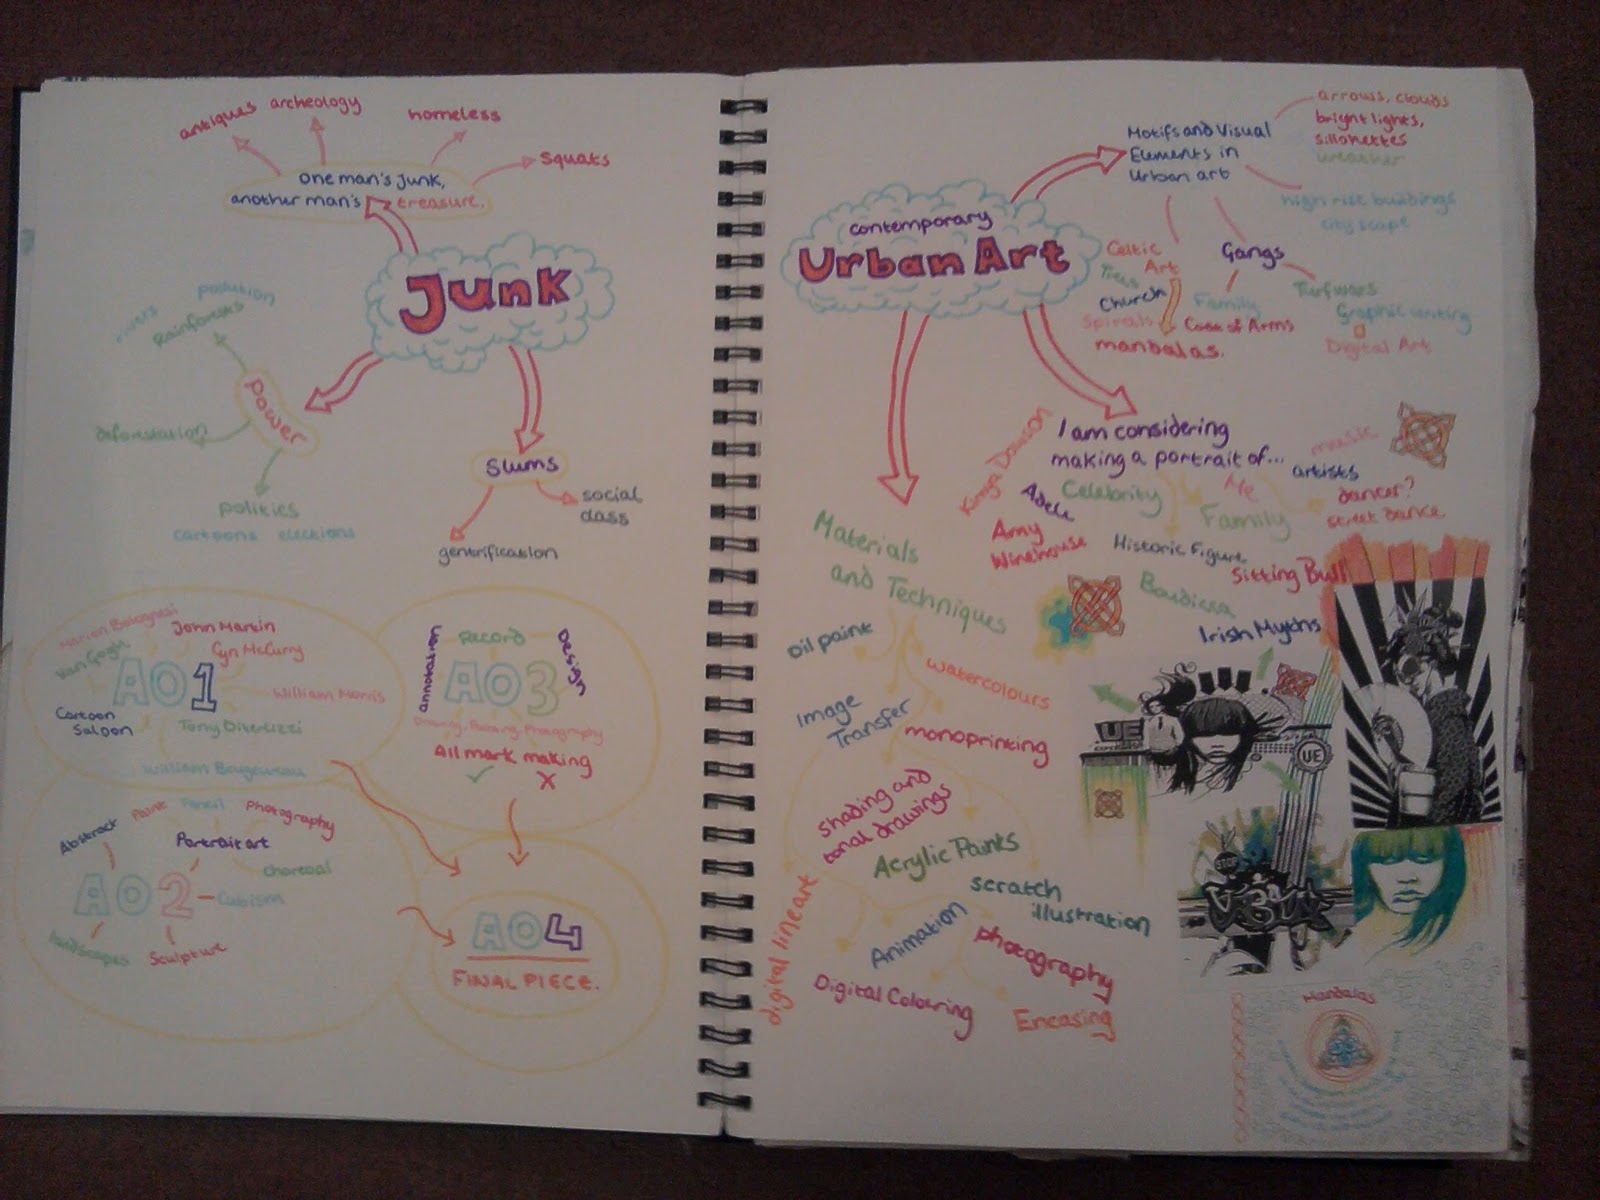 antiques
archeology
homeless
squats
one man's junk,
another man's treasure.
Junk
pollution
rivers
Rainforests
Power
deforestation
politics
cartoons elections
slums
social
class
gentrification
John Martin
Van Gogh
AO1
William Morris
Cartoon
Saloon
Tony Diterlizzi
annotation
record
Design
AO3
Drawing, Painting, Photography
All mark making
Abstract
Paint
Pencil
Photography
Portrait art
charcoal
AO2
Cubism
landscapes
Sculpture
AO4
FINAL PIECE.
contemporary
Urban Art
Motifs and Visual
Elements in
Urban art
arrows, clouds
bright lights,
sillohettes
weather
high rise buildings
city scape
Celtic
Art
Trees
Church
spirals
mandalas.
Gangs
Family
Coat of Arms
Turfwars
Graphic writing
Digital Art
I am considering
making a portrait of...
Kings Dawson
Adele
Amy
Winehouse
Celebrity
Me
Family
artists
music
dancer?
street dance
Historic Figure
Sitting Bull
Boudicca
Irish Myths
Materials
and Techniques
Oil paint
watercolours
Image
Transfer
monoprinting
shading and
tonal drawings
Acrylic Paints
scratch
illustration
digital lineart
Animation
photography
Digital Colouring
Encasing
UE
UE
STOP
Mandalas